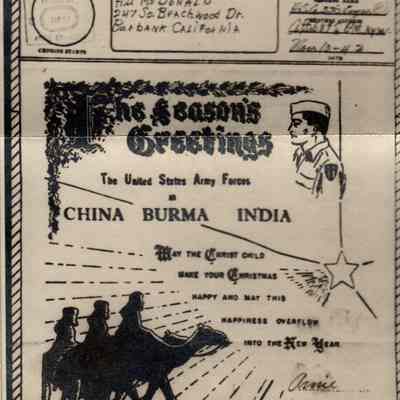 McDONALD
247 SO. BEACHWOOD Dr.
BURBANK CALIFORNIA
CENSORS STAMP
DATE
The Season's
Greetings
The United States Army Forces
in
CHINA BURMA INDIA
MAY THE CHRIST CHILD
MAKE YOUR CHRISTMAS
HAPPY AND MAY THIS
HAPPINESS OVERFLOW
INTO THE NEW YEAR
Arnie